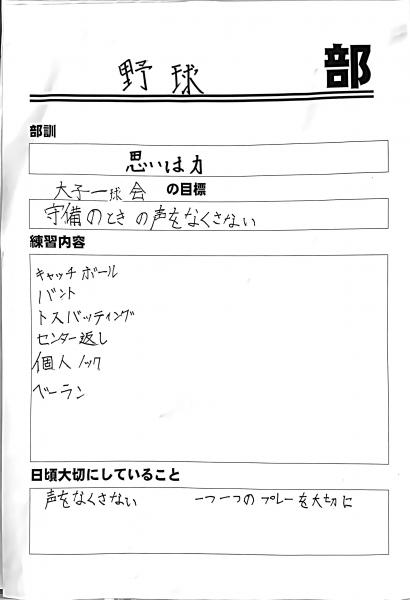 野球 部
部訓
思いは力
大子一球会 の目標
守備のときの声をなくさない
練習内容
キャッチボール
バント
トスバッティング
センター返し
個人ノック
ベーラン
日頃大切にしていること
声をなくさない 一つ一つのプレーを大切に